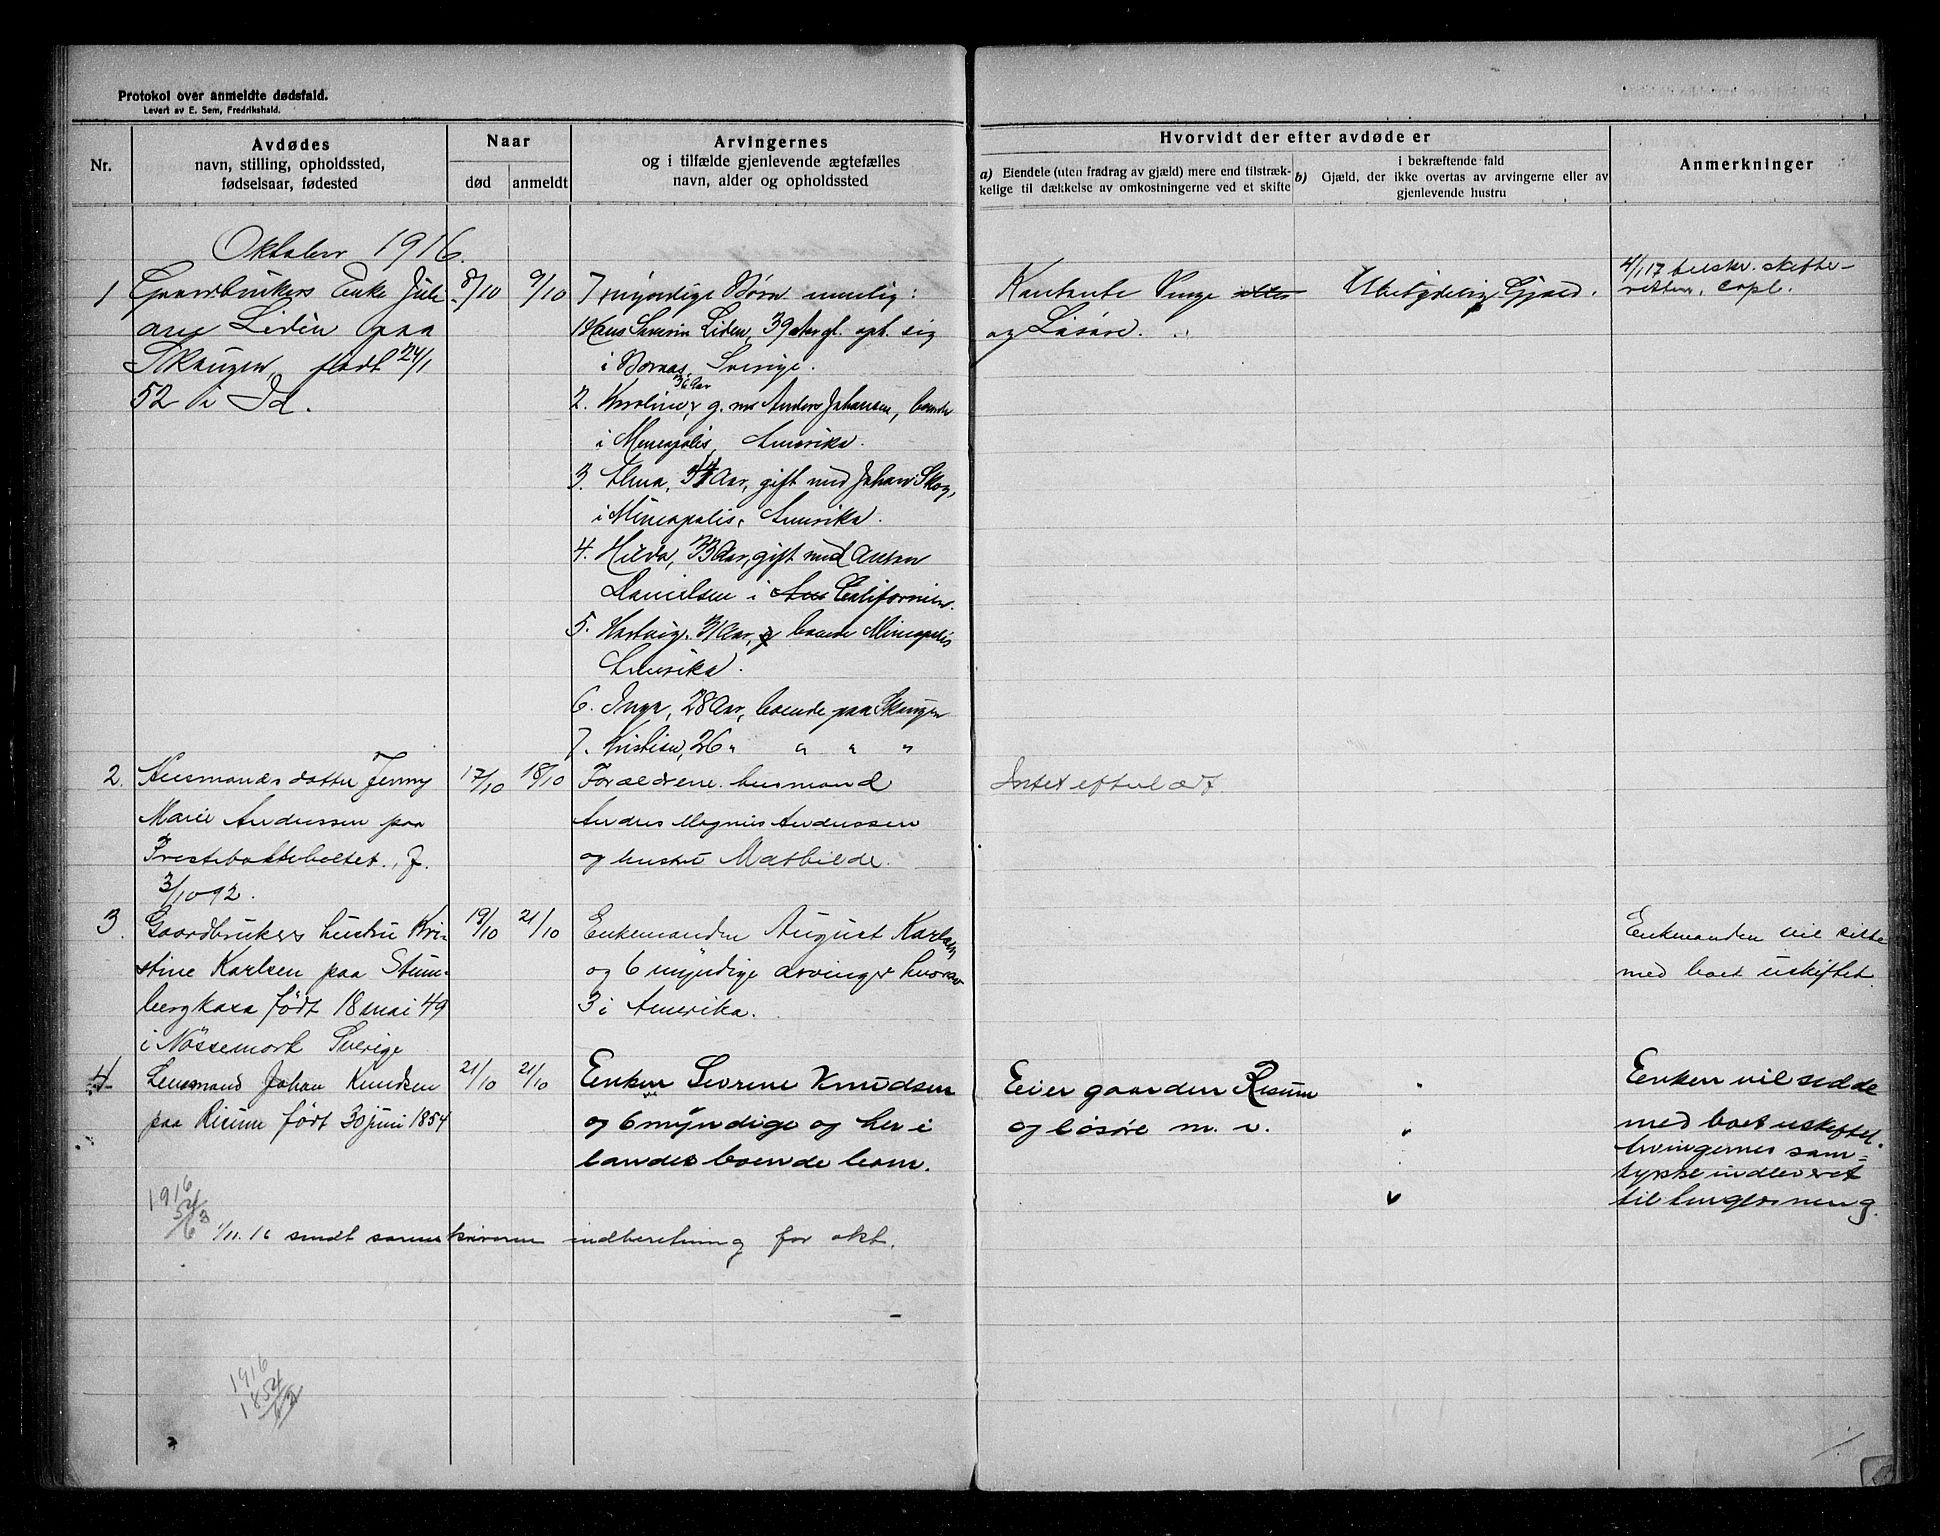 Protokol over anmeldte dødsfald.
Levert av E. Sem, Fredrikshald.
Nr.
Avdødes
navn, stilling, opholdssted,
fødselsaar, fødested
Naar
død
anmeldt
Arvingernes
og i tilfælde gjenlevende ægtefælles
navn, alder og opholdssted
Hvorvidt der efter avdøde er
a) Eiendele (uten fradrag av gjæld) mere end tilstræk-
kelige til dækkelse av omkostningerne ved et skifte
b)
i bekræftende fald
Gjæld, der ikke overtas av arvingerne eller av
gjenlevende hustru
Anmerkninger
Oktober 1916.
1
Gaardbrukers Enke Juli
ane Lidèn paa
Skaugen, født 24/1
52 i Id.
8/10
9/10
7 myndige Børn nemlig:
1 Hans Severin Liden, 39 Aar gl. oph. sig
i Boraas, Sverige.
36 Aar
2. Karoline, g. m. Anders Johansen, boende
i Mineapolis, Amerika.
3. Alma, 34 Aar, gift med Johan Skog,
i Mineapolis, Amerika.
4. Hilda, 33 Aar, gift med Anton
Danielsen i Californien.
5. Hartvig, 31 Aar, boende Mineapolis
Amerika.
6. Inga, 28 Aar, boende paa Skaugen
7. Kristian, 26 " " " "
Kontante Penge
og Løsøre.
Ubetydelig Gjæld.
4/1 17 tilskr. skifte-
retten, copi.
2.
Husmandsdatter Jenny
Marie Andersen paa
Prestebakkebøltet, f.
3/10 92.
17/10
18/10
Forældrene husmand
Andres Magnus Anderssen
og hustru Mathilde.
Intet efterladt.
3.
Gaardbrukers hustru Kri-
stine Karlsen paa Stum-
bergkasa født 18 mai 49
i Nössemark Sverige
19/10
21/10
Enkemanden August Karlsen
og 6 myndige arvinger hvorav
3 i Amerika.
Enkemanden vil sitte
med boet uskiftet.
4
Lensmand Johan Knudsen
paa Risum født 30 juni 1854
21/10
21/10
Enken Sevrine Knudsen
og 6 myndige og her i
landet boende barn.
Eier gaarden Risum
og løsøre m. v.
Enken vil sidde
med boet uskiftet.
Arvingernes sam=
tykke indleveret
til tinglæsning.
1916
54
63
1/11. 16 sendt sorenskriveren indberetning for okt.
1916
1854
62